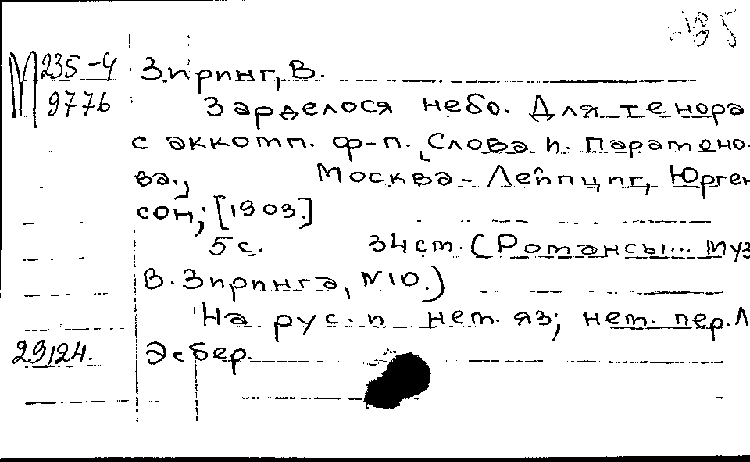 М 235-4
9776
Зиринг, В.
Зарделося небо. Для тенора
с аккомп. ф-п. Слова И. Парамоно-
ва., Москва - Лейпциг, Юрген
сон, [1903.]
5 с. 34 см. (Романсы... муз
В. Зиринга, №10.)
На рус. и нем. яз; нем. пер. Л
29124. Эсбер.